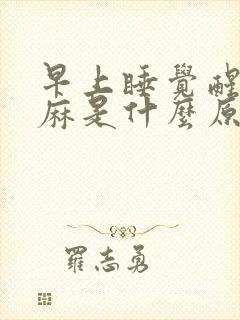 早上睡覺醒
麻是什麼原
羅志勇